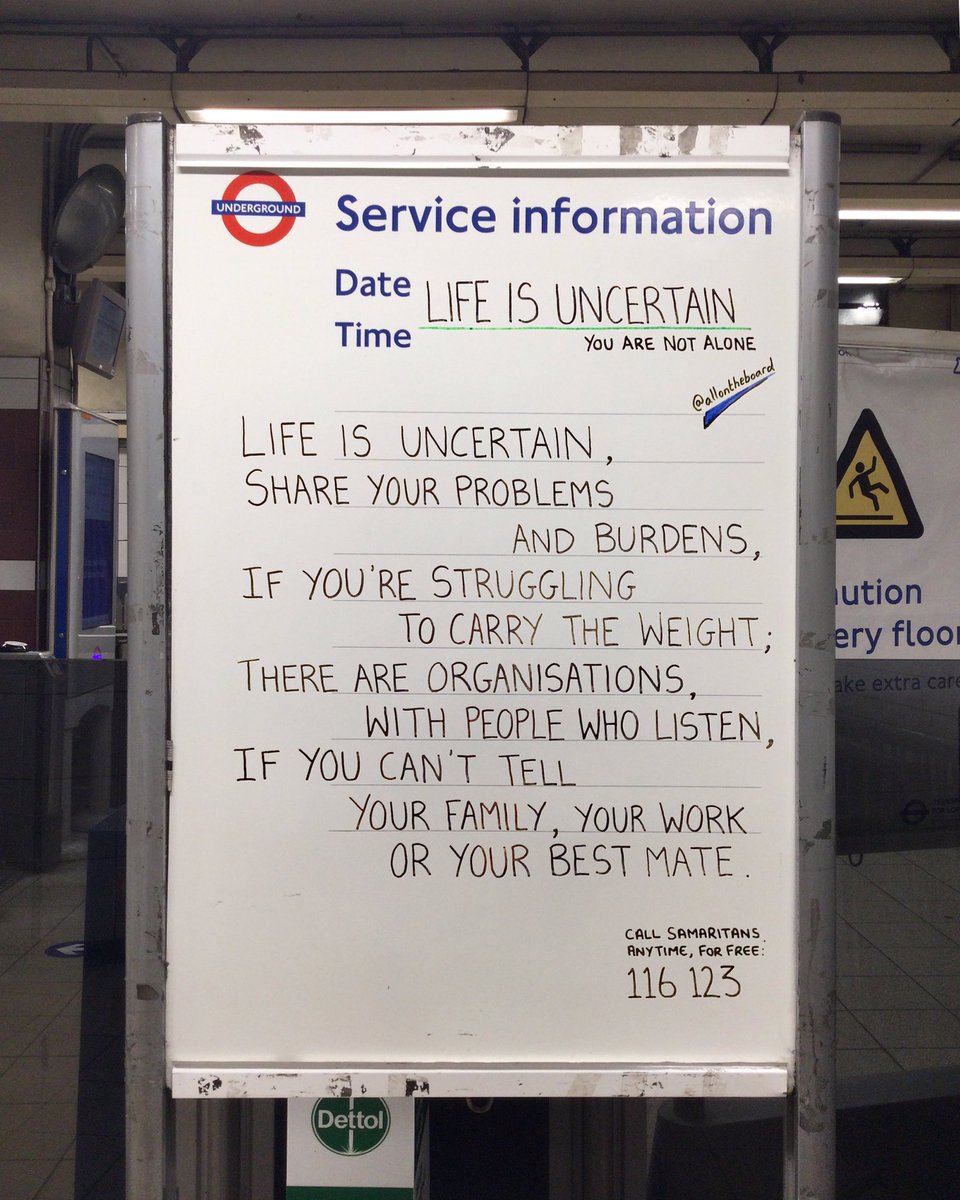 UNDERGROUND
Service information
Date
LIFE IS UNCERTAIN
Time
YOU ARE NOT ALONE
@allontheboard
LIFE IS UNCERTAIN,
SHARE YOUR PROBLEMS
AND BURDENS,
IF YOU'RE STRUGGLING
TO CARRY THE WEIGHT;
THERE ARE ORGANISATIONS,
WITH PEOPLE WHO LISTEN,
IF YOU CAN'T TELL
YOUR FAMILY, YOUR WORK
OR YOUR BEST MATE.
CALL SAMARITANS
ANYTIME, FOR FREE:
116 123
Dettol
ution
ery floor
ake extra care